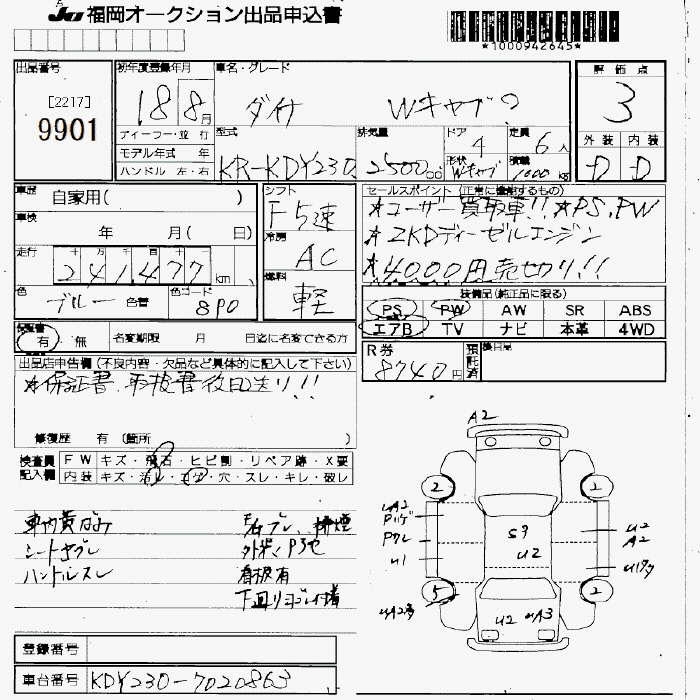 JU 福岡オークション出品申込書
*1000942645*
出品番号
[2217]
9901
初年度登録年月
18 8月
車名・グレード
ダイナ Wキャブ
評価点
3
外装 内装
D D
ディーフー・並行
モデル年式 年
ハンドル 左・右
型式
KR-KDY230
排気量
2500cc
ドア
4
定員
6人
形状
Wキャブ
積載
1000kg
車歴
自家用( )
車検
年 月( 日)
走行
十 万 千 百 十
241,477km
色
ブルー 色替
色コード
8P0
シフト
F5速
冷房
AC
燃料
軽
セールスポイント (正常に機能するもの)
★ユーザー買取車!! ★PS, PW
★2KDディーゼルエンジン
★4000円売切り!!
装備品(純正品に限る)
PS PW AW SR ABS
エアB TV ナビ 本革 4WD
保証書
有・無
名変期限 月 日迄に名変できる方
R券
8740円
預託済
後日品
出品店申告欄 (不良内容・欠品など具体的に記入して下さい)
★保証書、取扱書後日送り!!
修復歴 有 (箇所 )
検査員記入欄
FW キズ・飛石・ヒビ割・リペア跡・X要
内装 キズ・汚れ・コゲ・穴・スレ・キレ・破レ
車内黄ばみ
シートヤブレ
ハンドルスレ
看板有
下回りヨゴレ付着
A2
2 2
UA2
Pハゲ
Pワレ
U1
S9
U2
U2
A2
5 2
U2 UA3
登録番号
車台番号 KDY230-7020863